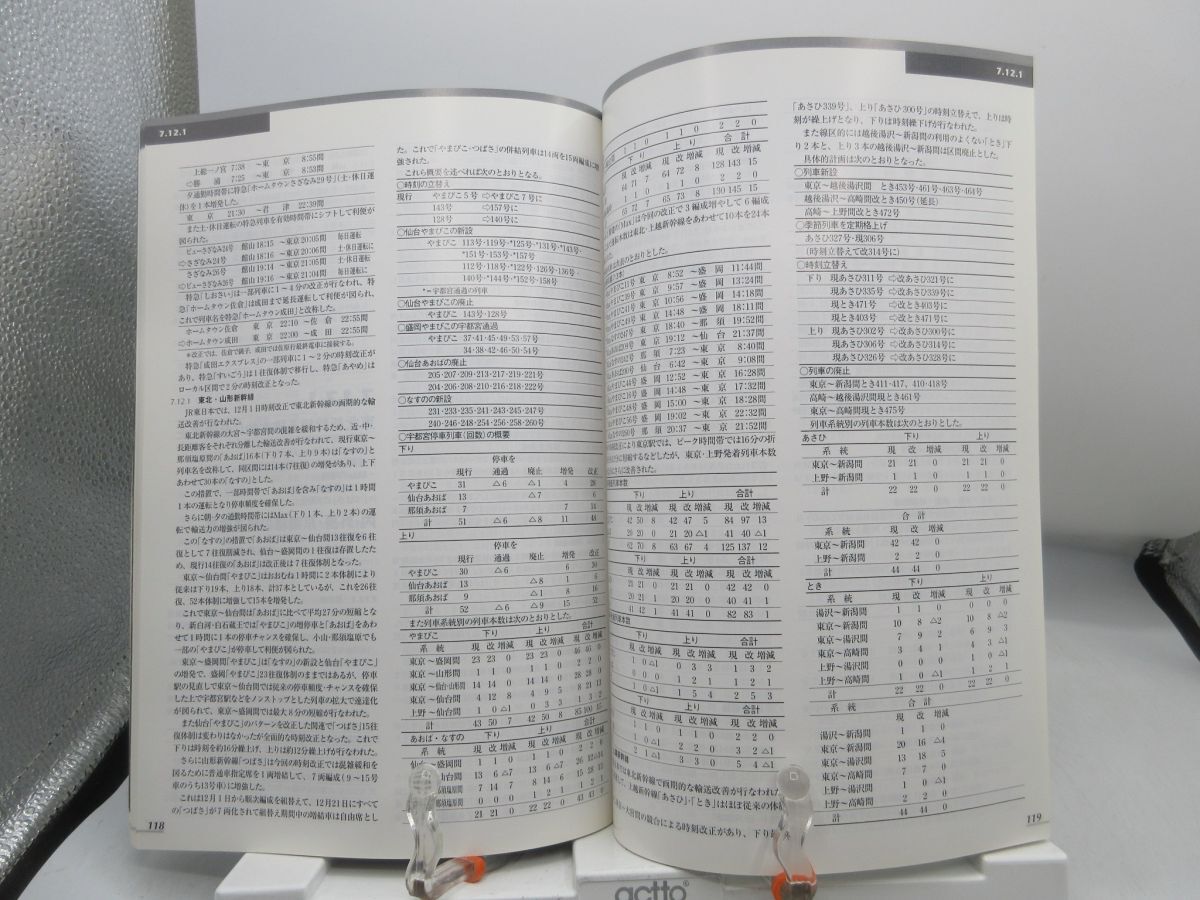 7.12.1
上総一ノ宮 7:38 ～東 京 8:55間
⇨勝 浦 7:25 ～東 京 8:53間
夕通勤時間帯に特急「ホームタウンさざなみ29号」(土・休日運
休)を1本増発した。
東 京 21:30 ～君 津 22:39間
また土・休日運転の特急列車を有効時間帯にシフトして利便が
図られた。
ビューさざなみ24号 館山 18:15 ～東京 20:05間 毎日運転
⇨さざなみ24号 館山 18:16 ～東京 20:06間 土・休日運転に
さざなみ26号 館山 19:14 ～東京 21:05間 土・休日運転
⇨ビューさざなみ26号 館山 19:16 ～東京 21:04間 毎日運転に
特急「しおさい」は一部列車に1～4分の改正が行なわれ、特
急「ホームタウン佐倉」は成田まで延長運転して利便が図られ、
これで列車名を特急「ホームタウン成田」と改称した。
ホームタウン佐倉 東 京 22:10 ～佐 倉 22:55間
⇨ホームタウン成田 東 京 22:00 ～成 田 22:55間
＊改正では、佐倉で銚子、成田では佐原行最終電車に接続する。
特急「成田エクスプレス」の一部列車に1～2分の時刻改正が
あり、特急「すいごう」は1往復体制で移行し、特急「あやめ」は
ローカル区間で2分の時刻改正となった。
7.12.1 東北・山形新幹線
JR東日本では、12月1日時刻改正で東北新幹線の画期的な輸
送改善が行なわれた。
東北新幹線の大宮～宇都宮間の混雑を緩和するため、近・中・
長距離客をそれぞれ分離した輸送改善が行なわれて、現行東京～
那須塩原間の「あおば」16本(下り7本、上り9本)は「なすの」と
列車名を改称して、同区間には14本(7往復)の増発があり、上下
あわせて30本の「なすの」とした。
この措置で、一部時間帯で「あおば」を含み「なすの」は1時間
1本の運転となり停車頻度を確保した。
さらに朝・夕の通勤時間帯にはMax(下り1本、上り2本)の運
転で輸送力の増強が図られた。
この「なすの」の措置で「あおば」は東京～仙台間13往復を6往
復として7往復削減され、仙台～盛岡間の1往復は存置したた
め、現行14往復の「あおば」は改正後は7往復体制となった。
東京～仙台間「やまびこ」はおおむね1時間に2本体制により
従来は下り19本、上り18本、計37本としているが、これを26往
復、52本体制に増強して15本を増発した。
これで東京～仙台間は「あおば」に比べて平均27分の短縮とな
り、新白河・白石蔵王では「やまびこ」の増停車と「あおば」をあわ
せて1時間に1本の停車チャンスを確保し、小山・那須塩原でも
一部の「やまびこ」が停車して利便が図られた。
東京～盛岡間「やまびこ」は「なすの」の新設と仙台「やまびこ」
の増発で、盛岡「やまびこ」23往復体制のままではあるが、停車
駅の見直しで東京～仙台間では従来の停車頻度・チャンスを確保
した上で宇都宮駅などをノンストップとした列車の拡大で速達化
が図られて、東京～盛岡間では最大8分の短縮が行なわれた。
また仙台「やまびこ」のパターンを改正した関連で「つばさ」15往
復体制は変わりはなかったが全面的な時刻改正となった。これで
下りは時刻を約16分繰上げ、上りは約12分繰上げが行なわれた。
さらに山形新幹線「つばさ」は今回の時刻改正では混雑緩和を
図るために普通車指定席を1両増結して、7両編成(9～15号
車のうち13号車)に増強した。
これは12月1日から順次編成を組替えて、12月21日にすべて
の「つばさ」が7両化されて組替え期間中の増結車は自由席とし
118
た。これで「やまびこ・つばさ」の併結列車は14両を15両編成に増
強された。
これら概要を述べれば次のとおりとなる。
○時刻の立替え
現行 やまびこ5号 ⇨やまびこ7号に
143号 ⇨157号に
128号 ⇨140号に
○仙台やまびこの新設
やまびこ 113号・119号・*125号・*131号・*143号・
*151号・153号・*157号
112号・118号・*122号・126号・136号・
140号・*144号・*152号・158号
*＝宇都宮通過の列車
○仙台やまびこの廃止
やまびこ 143号・128号
○盛岡やまびこの宇都宮通過
やまびこ 37・41・45・49・53・57号
34・38・42・46・50・54号
○仙台あおばの廃止
205・207・209・213・217・219・221号
204・206・208・210・216・218・222号
○なすのの新設
231・233・235・241・243・245・247号
240・246・248・254・256・258・260号
○宇都宮停車列車(回数)の概要
下り
停車を
現行 通過 廃止 増発 改正
やまびこ 31 △6 △1 4 28
仙台あおば 13 △7 6
那須あおば 7 7 14
計 51 △6 △8 11 48
上り
停車を
現行 通過 廃止 増発 改正
やまびこ 30 △6 6 30
仙台あおば 13 △8 1 6
那須あおば 9 △1 8 16
計 52 △6 △9 15 52
また列車系統別の列車本数は次のとおりとした。
やまびこ 下り 上り 合計
系 統 現 改 増減 現 改 増減 現 改 増減
東京～盛岡間 23 23 0 23 23 0 46 46 0
東京～山形間 1 1 0 1 1 0 2 2 0
東京～仙台・山形間 14 14 0 14 14 0 28 28 0
東京～仙台間 4 12 8 4 9 5 8 21 13
上野～仙台間 1 0 △1 0 3 3 1 3 2
計 43 50 7 42 50 8 85 100 15
あおば・なすの 下り 上り 合計
系 統 現 改 増減 現 改 増減 現 改 増減
仙台～盛岡間 1 1 0 1 1 0 2 2 0
仙台間 13 6 △7 13 6 △7 26 12 △14
那須塩原間 7 14 7 8 14 6 15 28 13
那須塩原間 0 0 0 1 2 1
21 21 0 22 22 0 43 43 0
7.12.1
1 1 0 1 1 0 2 2 0
下り 上り 合計
現 改 増減 現 改 増減 現 改 増減
64 71 7 64 72 8 128 143 15
1 1 0 1 1 0 2 2 0
65 72 7 65 73 8 130 145 15
「Max」は今回の改正で3編成増やして6編成
本数は東北・上越新幹線をあわせて10本を24本
のとおりとした。
東 京 8:52 ～盛 岡 11:44間
東 京 9:57 ～盛 岡 13:24間
東 京 10:56 ～盛 岡 14:18間
東 京 14:48 ～盛 岡 18:11間
東 京 18:40 ～那 須 19:52間
東 京 19:12 ～仙 台 21:37間
那 須 7:23 ～東 京 8:40間
仙 台 6:42 ～東 京 9:08間
盛 岡 12:52 ～東 京 16:28間
盛 岡 14:48 ～東 京 17:32間
盛 岡 15:00 ～東 京 18:28間
盛 岡 19:02 ～東 京 22:32間
那 須 20:37 ～東 京 21:52間
により東京駅では、ピーク時間帯では16分の折
に短縮するなどしたが、東京・上野発着列車本数
さらに改善された。
下り 上り 合計
現 改 増減 現 改 増減 現 改 増減
42 50 8 42 47 5 84 97 13
20 20 0 21 20 △1 41 40 △1
62 70 8 63 67 4 125 137 12
下り 上り 合計
現 改 増減 現 改 増減 現 改 増減
21 21 0 21 21 0 42 42 0
20 21 1 20 20 0 40 41 1
41 42 1 41 41 0 82 83 1
下り 上り 合計
現 改 増減 現 改 増減 現 改 増減
1 0 △1 0 3 3 1 3 2
0 0 0 1 2 1 1 2 1
1 0 △1 1 5 4 2 5 3
下り 上り 合計
現 改 増減 現 改 増減 現 改 増減
1 1 0 1 1 0 2 2 0
1 0 △1 2 2 0 3 2 △1
2 1 △1 3 3 0 5 4 △1
では東北新幹線で画期的な輸送改善が行なわれた
して、上越新幹線「あさひ」・「とき」はほぼ従来の体
～大宮間の競合による時刻改正があり、下り
「あさひ339号」、上り「あさひ300号」の時刻立替えで、上りは時
刻が繰上げとなり、下りは時刻繰下げが行なわれた。
また線区的には越後湯沢～新潟間の利用のよくない「とき」下
り2本と、上り3本の越後湯沢～新潟間は区間廃止とした。
具体的計画は次のとおりとなった。
○列車新設
東京～越後湯沢間 とき453号・461号・463号・464号
越後湯沢～高崎間改とき450号(延長)
高崎～上野間改とき472号
○季節列車を定期格上げ
あさひ327号・現306号
(時刻立替えで改314号に)
○時刻立替え
下り 現あさひ311号 ⇨改あさひ321号に
現あさひ335号 ⇨改あさひ339号に
現とき471号 ⇨改とき403号に
現とき403号 ⇨改とき471号に
上り 現あさひ302号 ⇨改あさひ300号に
現あさひ306号 ⇨改あさひ314号に
現あさひ326号 ⇨改あさひ328号に
○列車の廃止
東京～新潟間とき411・417、410・418号
高崎～越後湯沢間現とき461号
東京～高崎間現とき475号
列車系統別の列車本数は次のとおりとした。
あさひ 下り 上り
系 統 現 改 増減 現 改 増減
東京～新潟間 21 21 0 21 21 0
上野～新潟間 1 1 0 1 1 0
計 22 22 0 22 22 0
合 計
系 統 現 改 増減
東京～新潟間 42 42 0
上野～新潟間 2 2 0
計 44 44 0
とき 下り 上り
系 統 現 改 増減 現 改 増減
湯沢～新潟間 1 1 0 0 0 0
東京～新潟間 10 8 △2 10 8 △2
東京～湯沢間 7 9 2 6 9 3
東京～高崎間 3 4 1 4 3 △1
上野～湯沢間 0 0 0 1 0 △1
上野～高崎間 1 0 △1 1 2 1
計 22 22 0 22 22 0
合 計
系 統 現 改 増減
湯沢～新潟間 1 1 0
東京～新潟間 20 16 △4
東京～湯沢間 13 18 5
東京～高崎間 7 7 0
上野～湯沢間 1 0 △1
上野～高崎間 2 2 0
計 44 44 0
119
actto